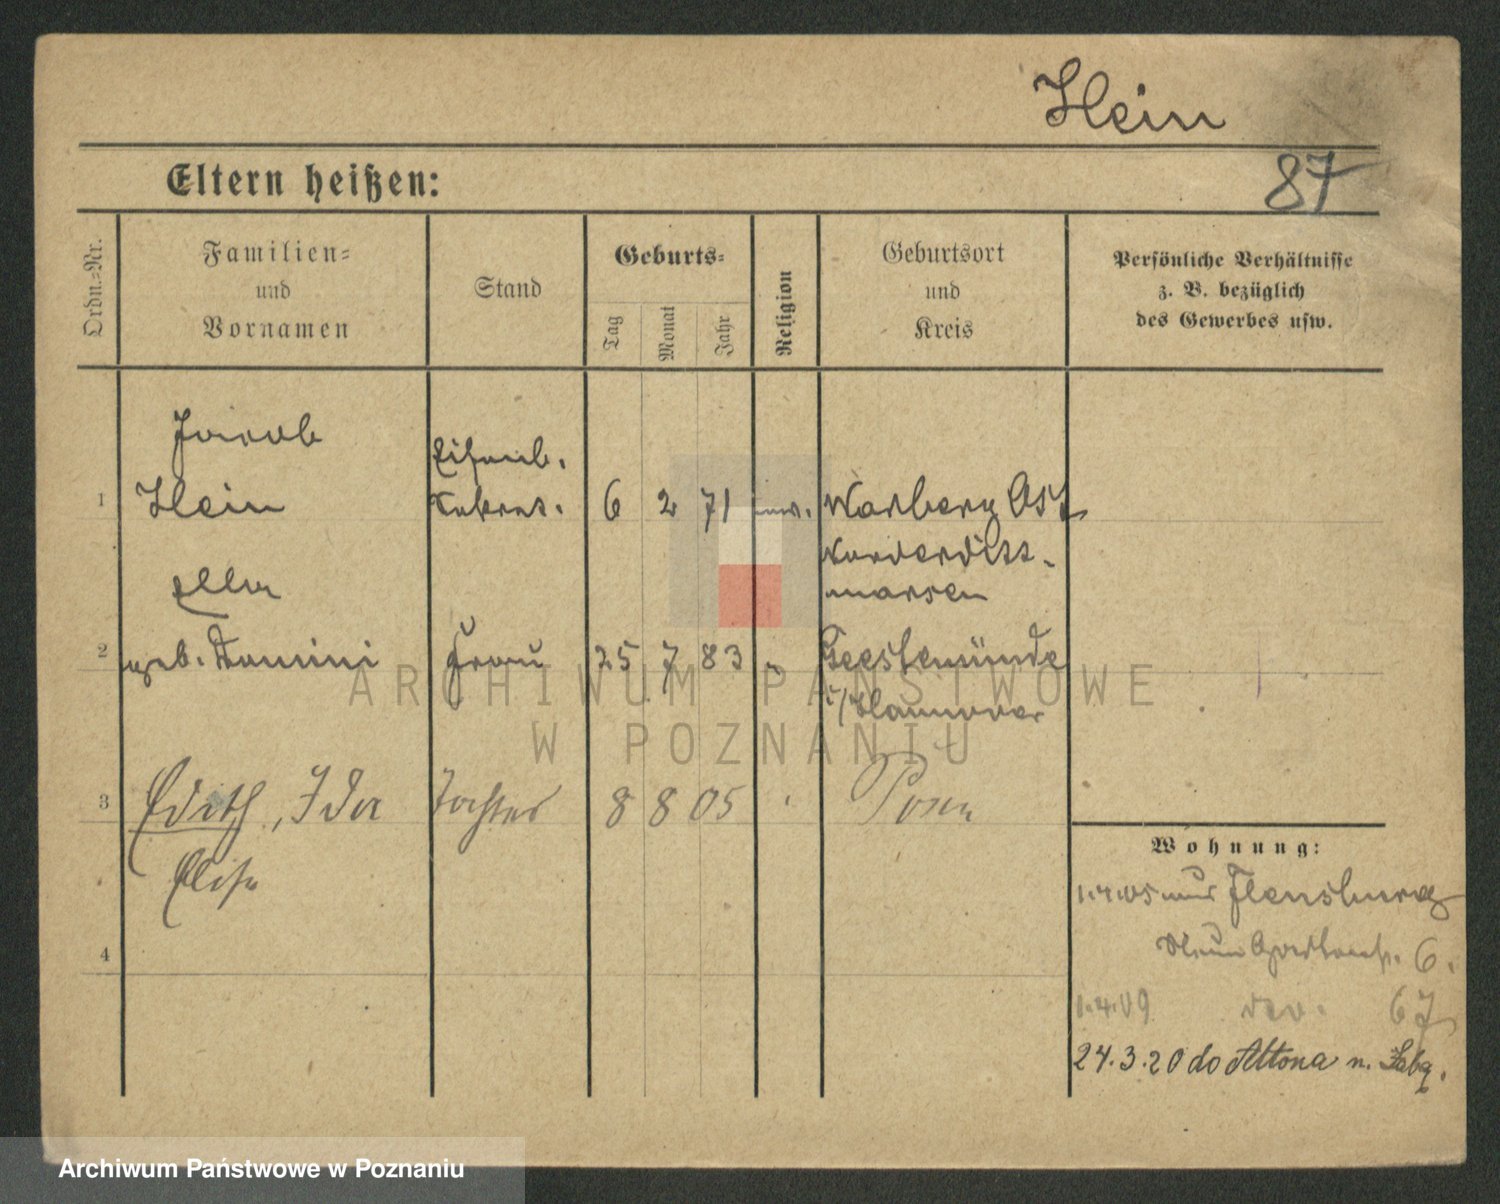 Hein
87
Eltern heißen:
Ordn.=Nr.
Familien=
und
Vornamen
Stand
Geburts=
Tag
Monat
Jahr
Religion
Geburtsort
und
Kreis
Persönliche Verhältnisse
z. B. bezüglich
des Gewerbes usw.
Jacob
Eisenb.
1 Hein 6 2 71 Warberg Ost
Norderdit-
marsen
Ella
2 geb. Frau 25 7 83 Geestemünde
i/Hannover
3 Edith, Ida Tochter 8 8 05 Posen
Elise
4
Wohnung:
1.4.05 aus Flensburg
6.
1.4.09 67
24.3.20 do Altona n. Labg.
ARCHIWUM PAŃSTWOWE
W POZNANIU
Archiwum Państwowe w Poznaniu